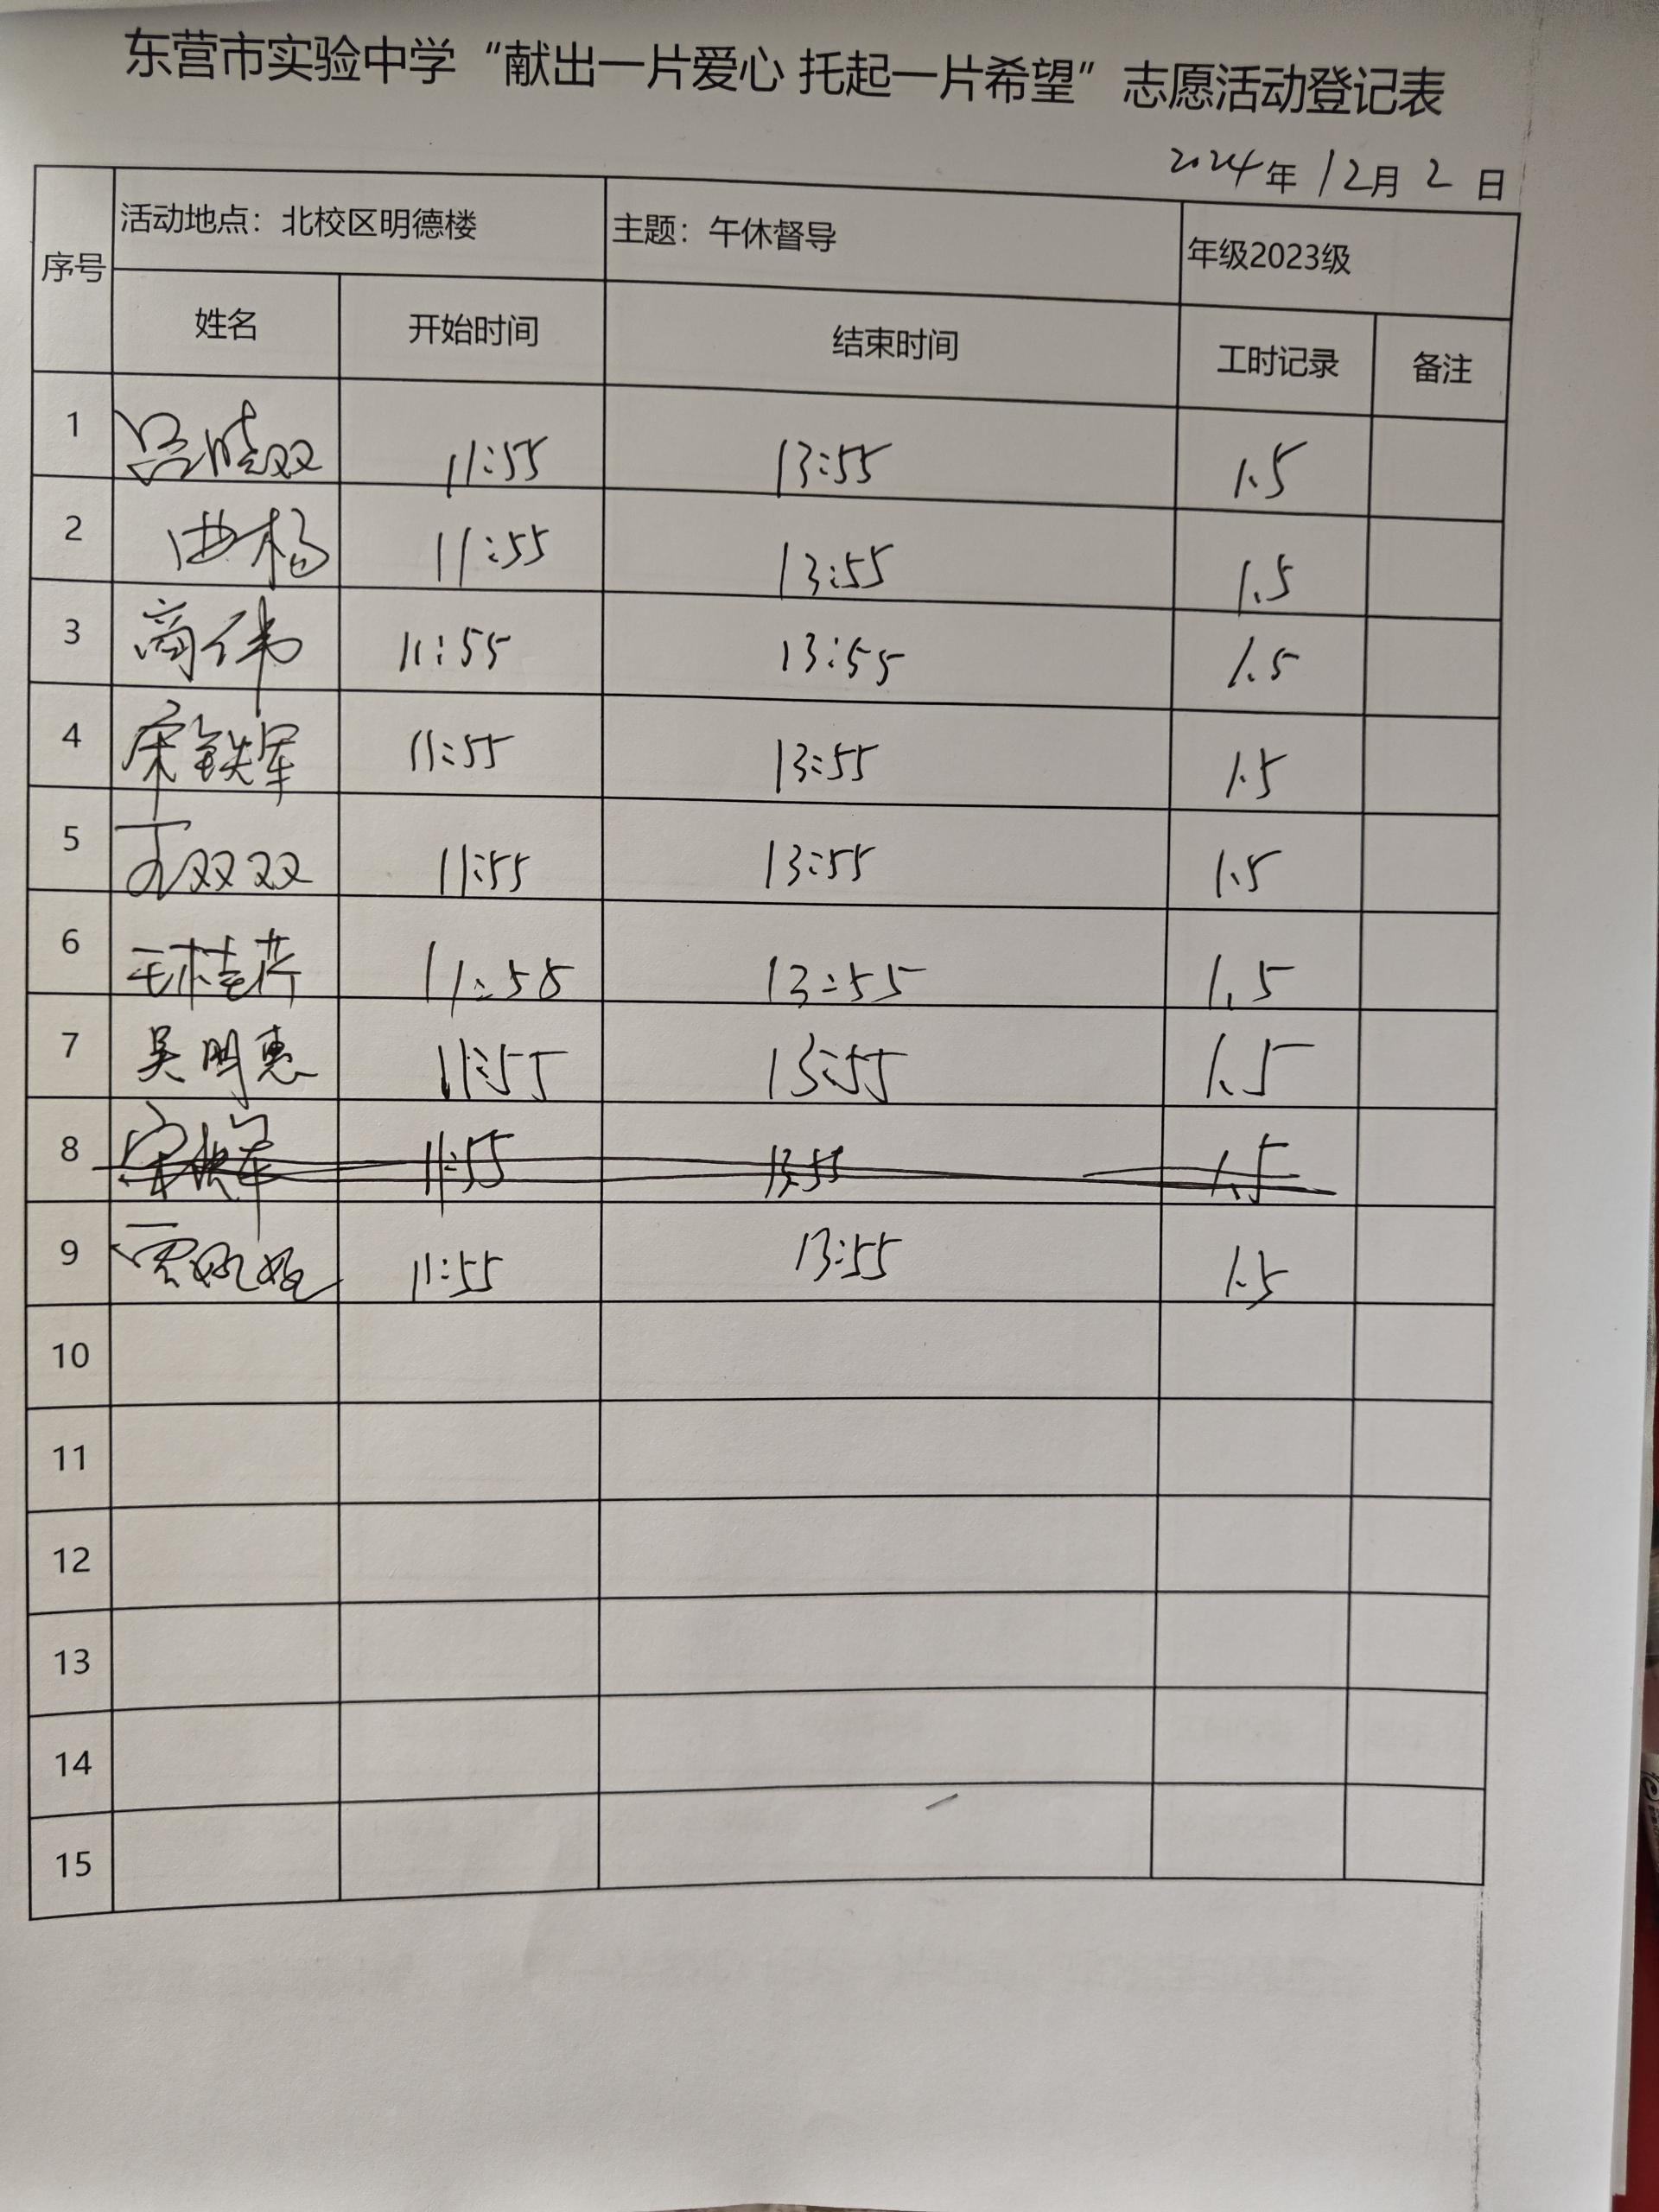 东营市实验中学“献出一片爱心 托起一片希望”志愿活动登记表
2024年12月2日
序号 活动地点：北校区明德楼 主题：午休督导 年级2023级
姓名 开始时间 结束时间 工时记录 备注
1 吕晓双 11:55 13:55 1.5
2 曲杨 11:55 13:55 1.5
3 商伟 11:55 13:55 1.5
4 宋铁军 11:55 13:55 1.5
5 双双 11:55 13:55 1.5
6 王桂芹 11:58 13:55 1.5
7 吴明惠 11:55 13:55 1.5
8 宋铁军 11:55 13:55 1.5
9 11:55 13:55 1.5
10
11
12
13
14
15